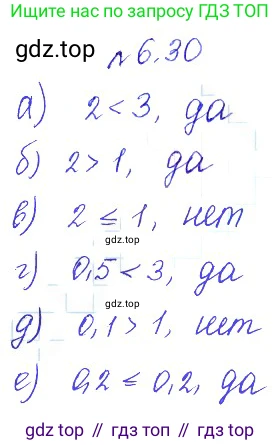 Ищите нас по запросу ГДЗ ТОП
gdz.top
№6.30
а) 2 < 3, да
б) 2 > 1, да
в) 2 ≤ 1, нет
gdz.top
г) 0,5 < 3, да
д) 0,1 > 1, нет
gdz.top
е) 0,2 ≤ 0,2, да
gdz.top // гдз топ // gdz.top